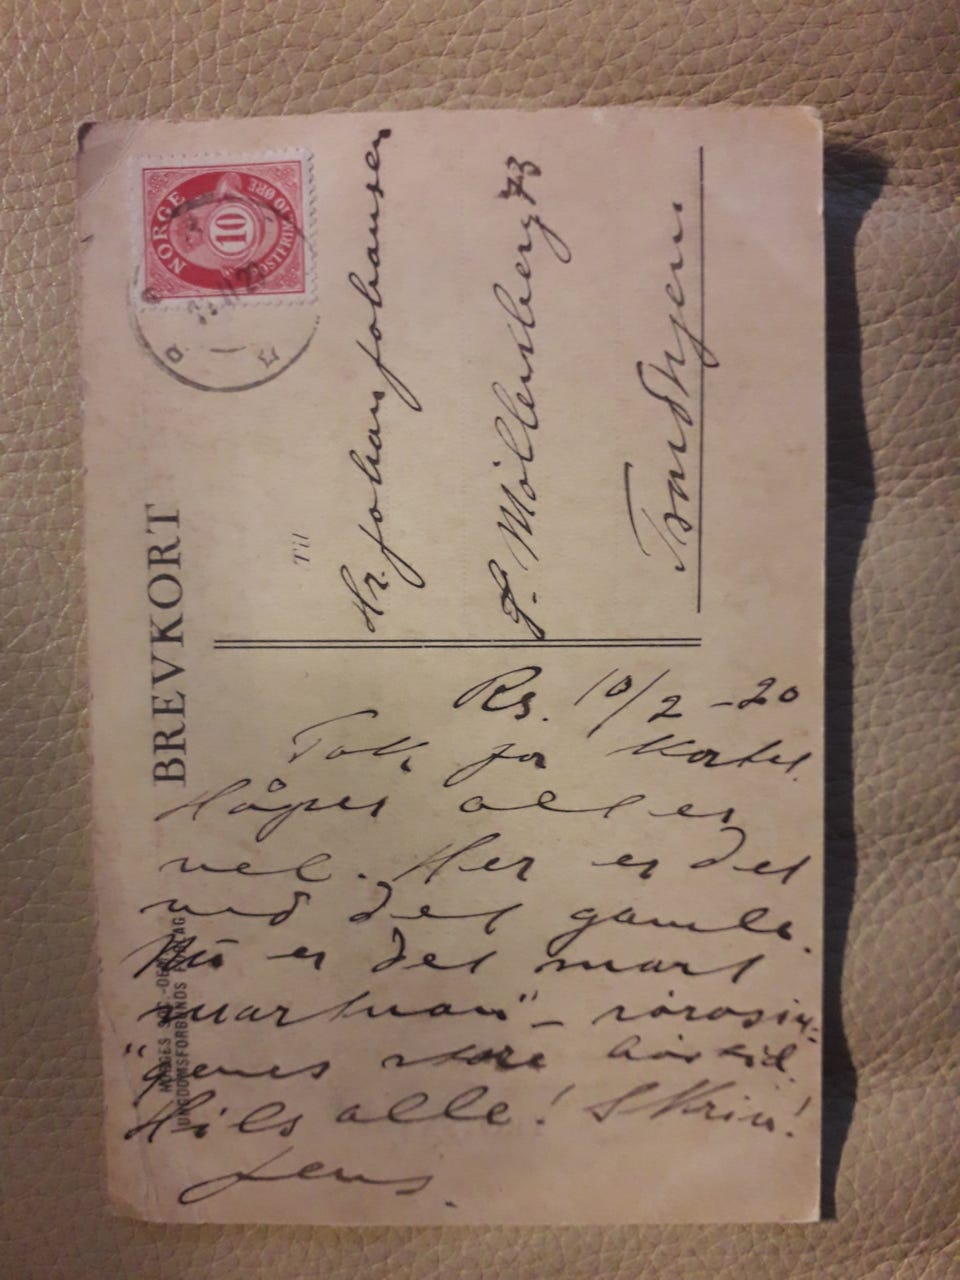 BREVKORT
NORGE
10
10 ØRE
POSTFRIM
Til
Hr. Johan Johansen
g. Möllenberg 73
Trondhjem
Rs. 10/2 - 20
Takk for kortet.
Håper alt er
vel. Her er det
ved det gamle.
Nu er det snart
"martnan" - rörosin-
genes store höitid.
Hils alle! Skriv!
Jens.
UNGDOMSFORBUNDS FORLAG